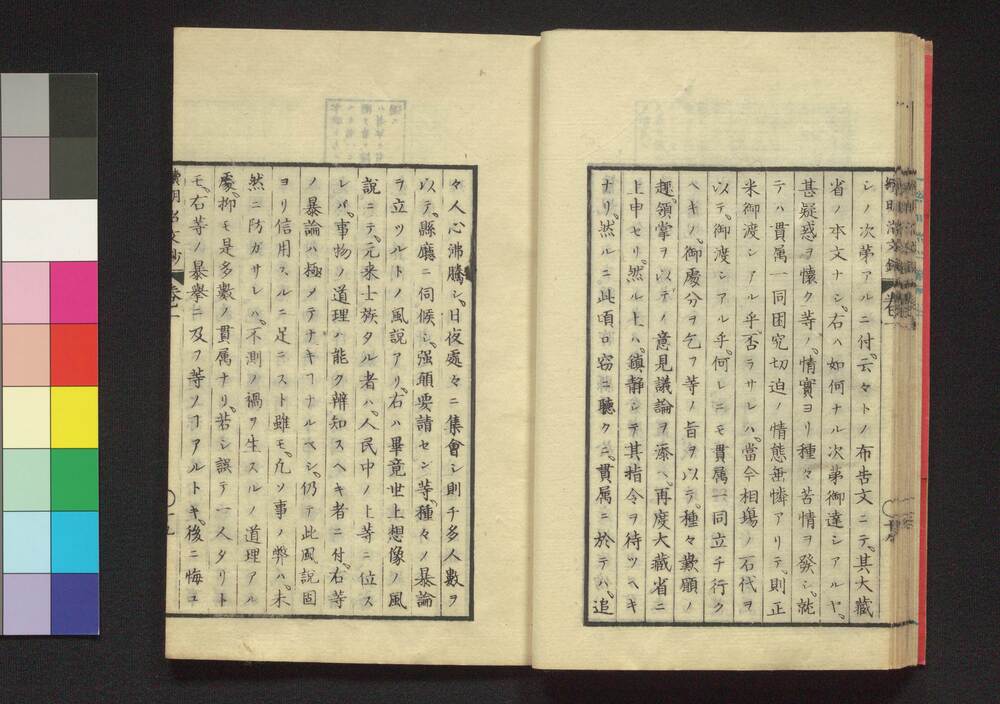 シノ次第アルニ付。云々トノ布告文ニテ。其大藏
省ノ本文ナシ。右ハ如何ナル次第御達シアルヤ。
甚疑惑ヲ懷ク等ノ。情實ヨリ種々苦情ヲ發シ。就
テハ貫属一同困究切迫ノ情態無憐アリテ。則正
米御渡シアル乎。否ラサレハ。當今相場ノ石代ヲ
以テ。御渡シアル乎。何レニモ貫属一同立チ行ク
ヘキノ。御處分ヲ乞フ等ノ旨ヲ以テ。種々歎願ノ
趣。領掌ヲ以テノ意見議論ヲ添ヘ。再度大藏省ニ
上申セリ。然ル上ハ。鎮静シテ其指令ヲ待ツヘキ
ナリ。然ルニ此頃ロ窃ニ聽クニ。貫属ニ於テハ。追
々人心沸騰シ。日夜處々ニ集會シ則チ多人數ヲ
以テ。縣廳ニ伺候シ。强願要請セン等。種々ノ暴論
ヲ立ツルトノ風說アリ。右ハ畢竟世上想像ノ風
說ニテ。元来士族タル者ハ。人民中ノ上等ニ位ス
レバ。事物ノ道理ハ能ク辨知スヘキ者ニ付。右等
ノ暴論ハ極メテナキヿナルベシ。仍テ此風說固
ヨリ信用スルニ足ニスト雖モ。凢ソ事ノ弊ハ。未
然ニ防ガサレハ。不測ノ禍ヲ生スルノ道理アル
處。抑モ是多數ノ貫属ナリ。若シ誤テ一人タリト
モ。右等ノ暴擧ニ及フ等ノヿアルトキ。後ニ悔ユ
卷一
九